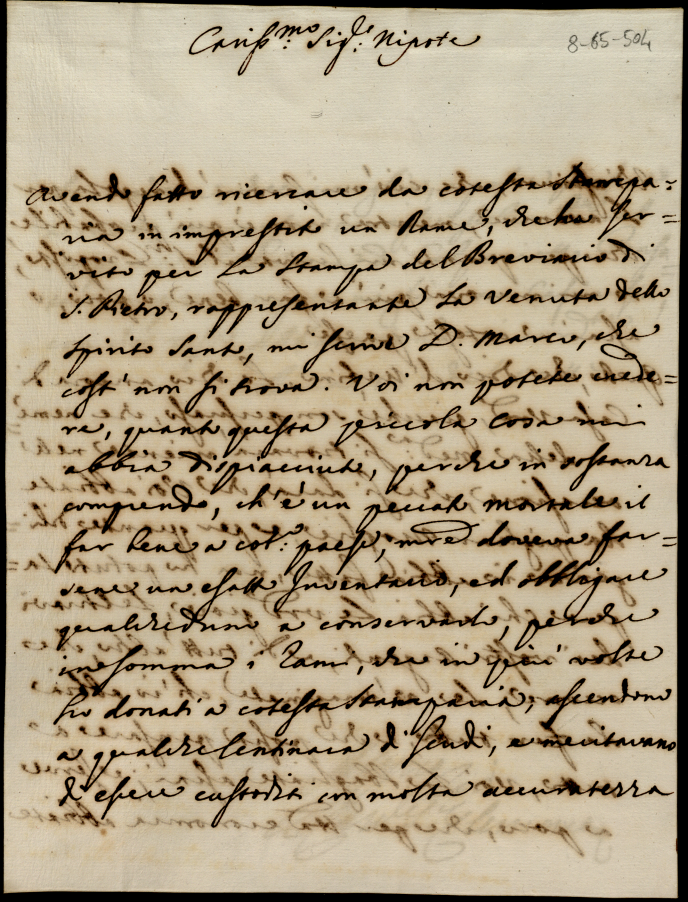 Cariss.mo Sig.r Nipote
8-65-504
Avendo fatto ricercare da cotesta Stampa=
ria in imprestito un Rame, che ha ser=
vito per la Stampa del Breviario di
S. Pietro, rappresentante la venuta dello
Spirito Santo, mi scrive D. Marco, che
costì non si trova. Voi non potete crede=
re, quanto questa piccola cosa mi
abbia dispiacciuto, perche in sostanza
comprendo, ch'è un peccato mortale il
far bene a cot.o paese, mentre doveva far=
sene un esatto Inventario, ed obbligare
qualcheduno a conservarlo, perche
in somma i Rami, che in più volte
hò donati a cotesta Stamparia, ascendono
a qualche Centinara di Scudi, e meritavano
di essere custoditi con molta accuratezza